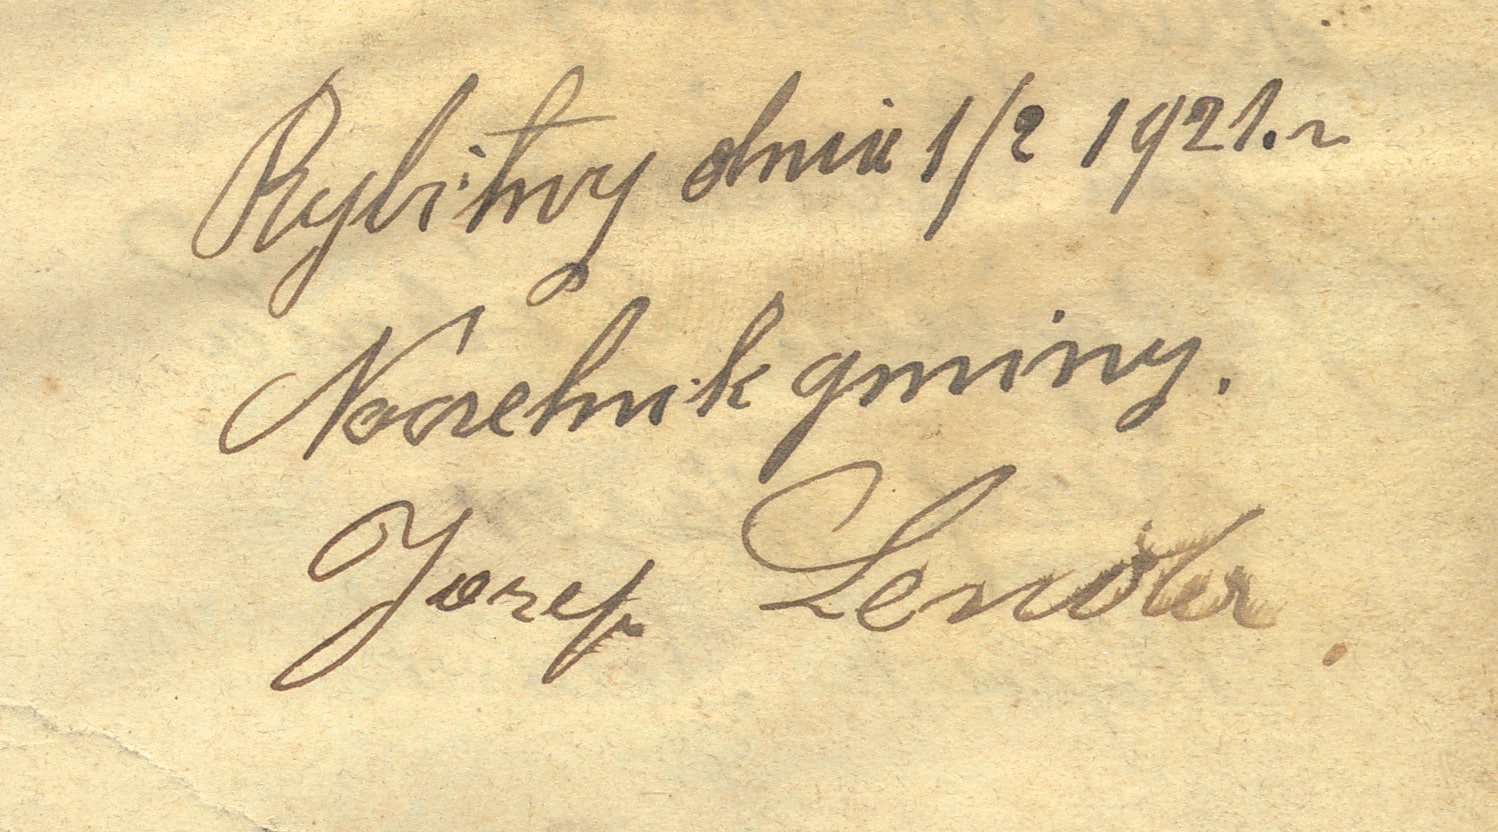 Rybitwy dnia 1/2 1921. r
Naczelnik gminy.
Jozef Lenda.